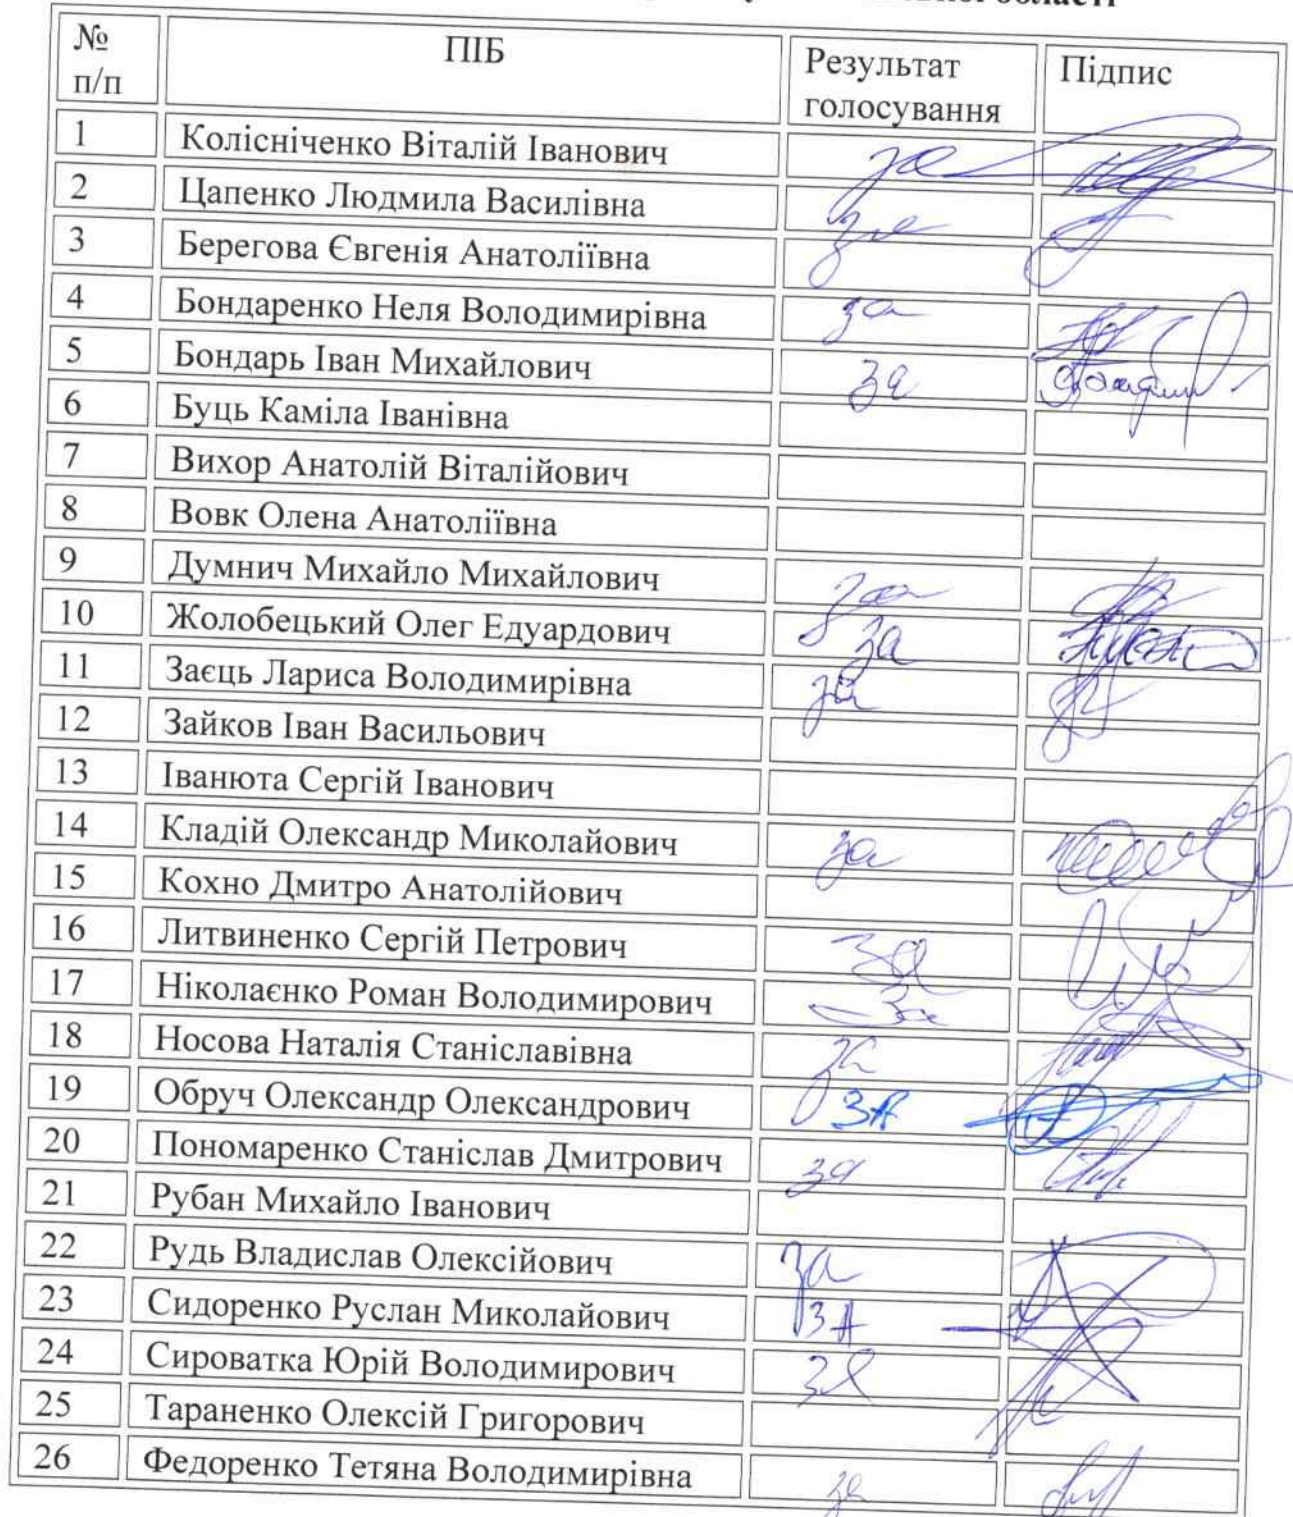 області
№ п/п ПІБ Результат голосування Підпис
1 Колісніченко Віталій Іванович за
2 Цапенко Людмила Василівна за
3 Берегова Євгенія Анатоліївна
4 Бондаренко Неля Володимирівна за
5 Бондарь Іван Михайлович за
6 Буць Каміла Іванівна
7 Вихор Анатолій Віталійович
8 Вовк Олена Анатоліївна
9 Думнич Михайло Михайлович за
10 Жолобецький Олег Едуардович за
11 Заєць Лариса Володимирівна за
12 Зайков Іван Васильович
13 Іванюта Сергій Іванович
14 Кладій Олександр Миколайович за
15 Кохно Дмитро Анатолійович
16 Литвиненко Сергій Петрович За
17 Ніколаєнко Роман Володимирович За
18 Носова Наталія Станіславівна за
19 Обруч Олександр Олександрович ЗА
20 Пономаренко Станіслав Дмитрович за
21 Рубан Михайло Іванович
22 Рудь Владислав Олексійович за
23 Сидоренко Руслан Миколайович ЗА
24 Сироватка Юрій Володимирович за
25 Тараненко Олексій Григорович
26 Федоренко Тетяна Володимирівна за